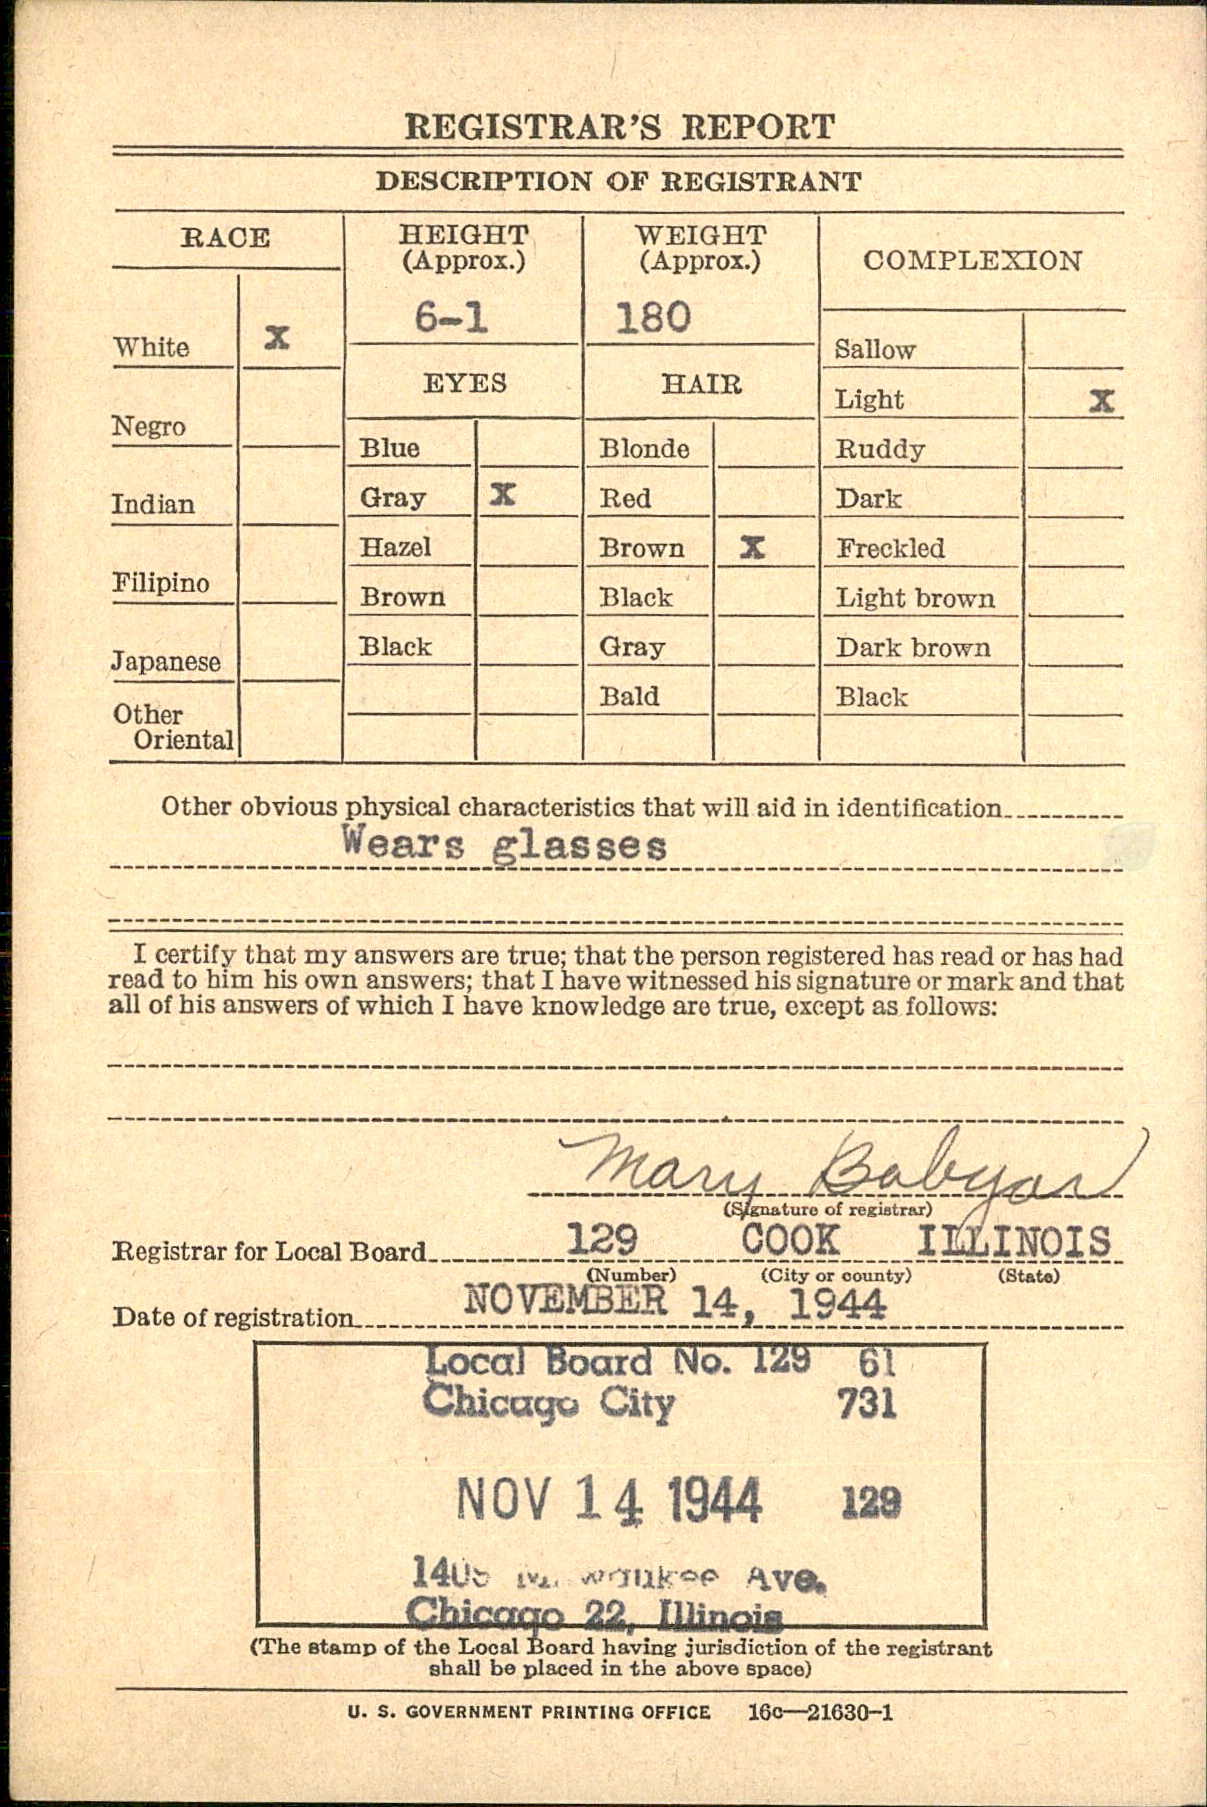 REGISTRAR'S REPORT
DESCRIPTION OF REGISTRANT
RACE
White X
Negro
Indian
Filipino
Japanese
Other
Oriental
HEIGHT
(Approx.)
6-1
EYES
Blue
Gray X
Hazel
Brown
Black
WEIGHT
(Approx.)
180
HAIR
Blonde
Red
Brown X
Black
Gray
Bald
COMPLEXION
Sallow
Light X
Ruddy
Dark
Freckled
Light brown
Dark brown
Black
Other obvious physical characteristics that will aid in identification
Wears glasses
I certify that my answers are true; that the person registered has read or has had
read to him his own answers; that I have witnessed his signature or mark and that
all of his answers of which I have knowledge are true, except as follows:
Mary
(Signature of registrar)
Registrar for Local Board 129 COOK ILLINOIS
(Number) (City or county) (State)
Date of registration NOVEMBER 14, 1944
Local Board No. 129 61
Chicago City 731
NOV 14 1944 129
Milwaukee Ave.
Chicago 22, Illinois
(The stamp of the Local Board having jurisdiction of the registrant
shall be placed in the above space)
U. S. GOVERNMENT PRINTING OFFICE 16c—21630-1